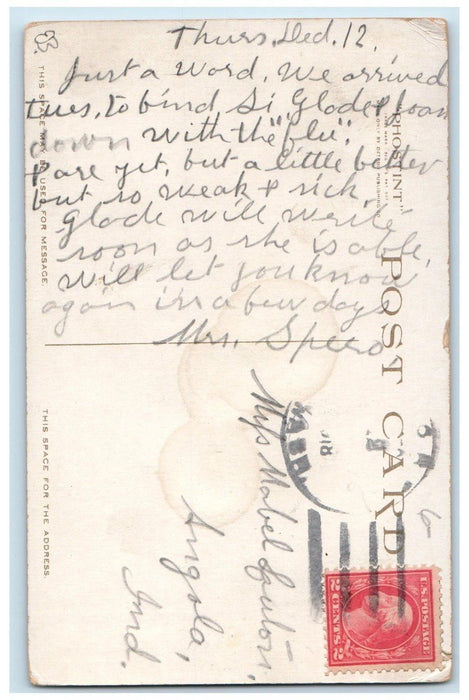 Thurs. Ded. 12.
Just a word. We arrived
tues, to bind Si Glade & Joan
down with the "flu".
& are yet, but a little better
but so weak & sick.
Glade will write
soon as she is able.
Will let you know
again in a few days
Mrs. Speero
THIS SPACE MAY BE USED FOR MESSAGE.
"RHOSTINT"
POST CARD
THIS SPACE FOR THE ADDRESS.
Miss Mabel
Angola,
Ind.
6
U.S. POSTAGE
2 CENTS 2